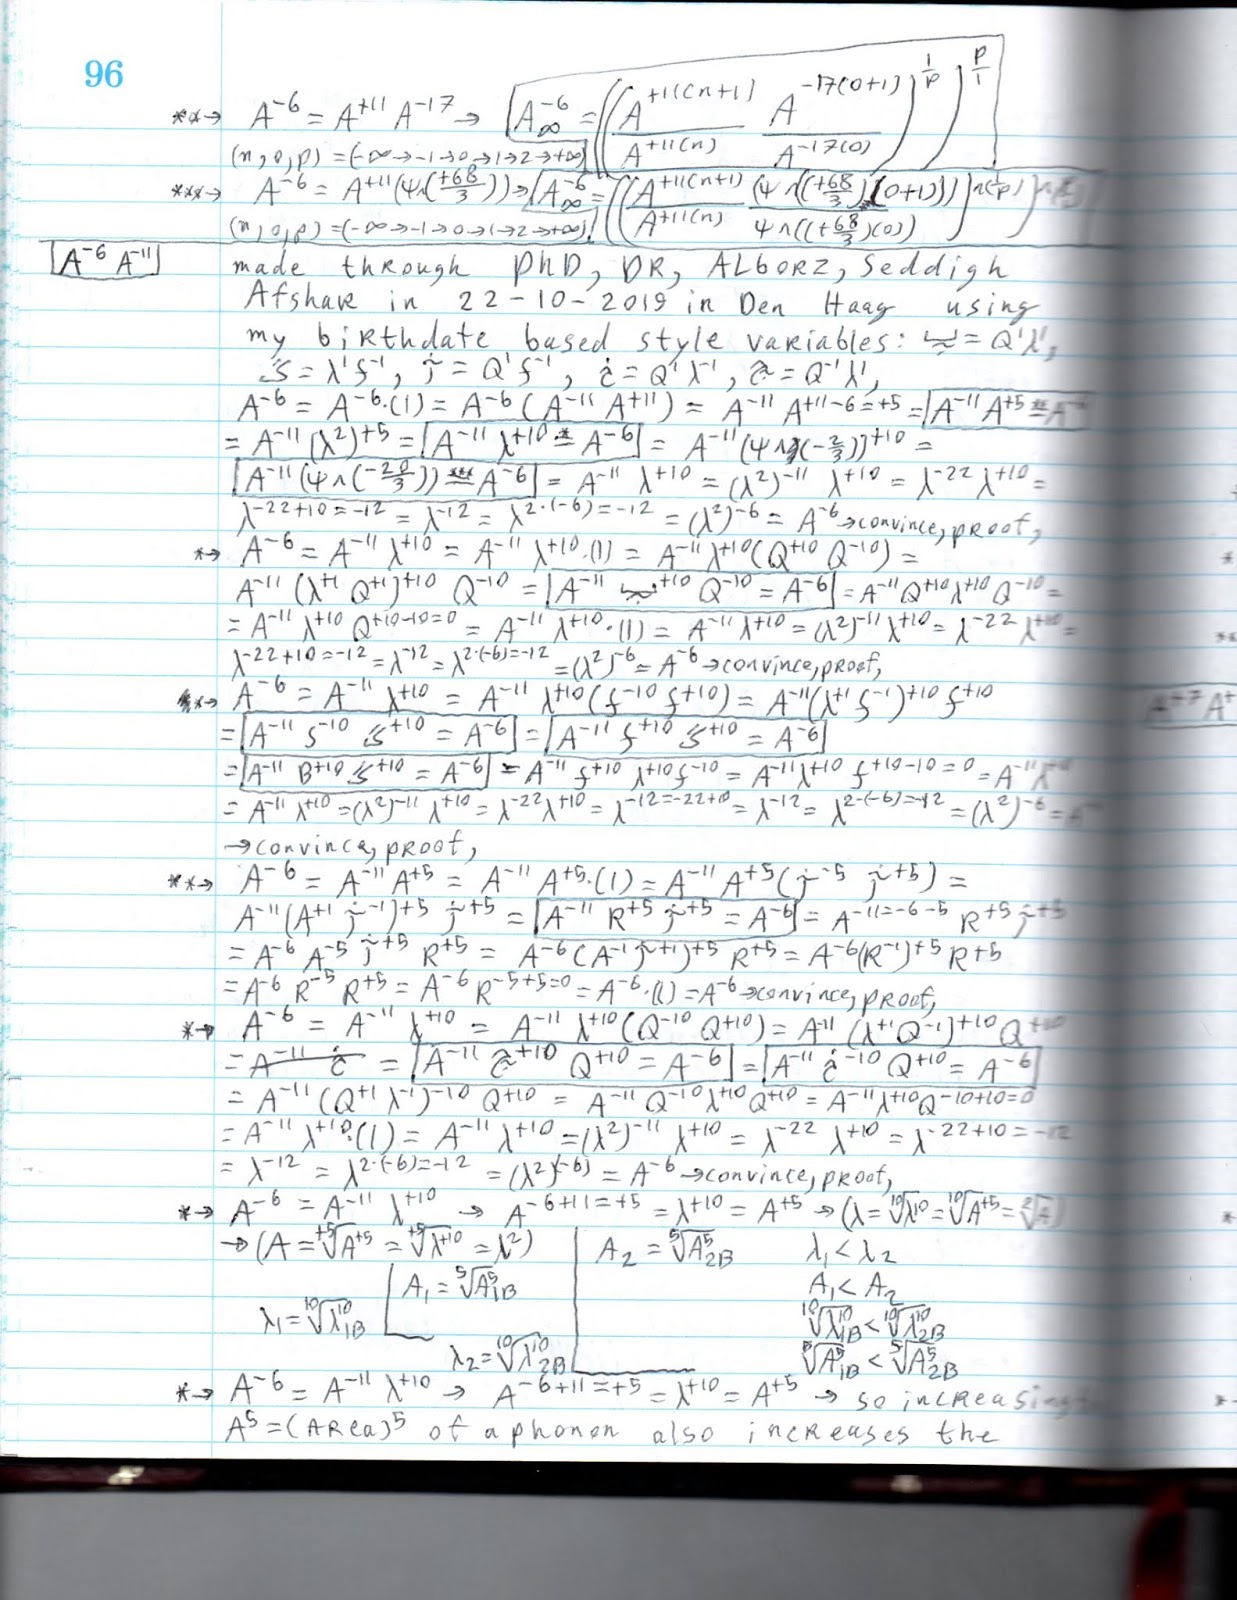 96
**→ A⁻⁶ = A⁺¹¹ A⁻¹⁷ → A∞⁻⁶ = ((A^{+11(n+1)}/A^{+11(n)} A^{-17(0+1)}/A^{-17(0)})^{1/p})^{p/1}
(n,0,p) = (-∞→-1→0→1→2→+∞)
***→ A⁻⁶ = A⁺¹¹(Ψ^(+68/3)) → A∞⁻⁶ = ((A^{+11(n+1)}/A^{+11(n)} (Ψ^((+68/3)(0+1)))/Ψ^((+68/3)(0)))
(n,0,p) = (-∞→-1→0→1→2→+∞)
A⁻⁶ A⁻¹¹ made through PhD, DR, ALBORZ, Seddigh
Afshar in 22-10-2019 in Den Haag using
my birthdate based style variables: = Q¹λ¹,
= λ¹f⁻¹, = Q¹f⁻¹, ċ = Q¹λ⁻¹, = Q⁻¹λ¹,
A⁻⁶ = A⁻⁶·(1) = A⁻⁶(A⁻¹¹ A⁺¹¹) = A⁻¹¹ A^{+11-6=+5} = A⁻¹¹A⁺⁵ =* A⁻⁶
= A⁻¹¹(λ²)⁺⁵ = A⁻¹¹ λ⁺¹⁰ =* A⁻⁶ = A⁻¹¹(Ψ^(-2/3))⁺¹⁰ =
A⁻¹¹(Ψ^(-20/3)) =*** A⁻⁶ = A⁻¹¹ λ⁺¹⁰ = (λ²)⁻¹¹ λ⁺¹⁰ = λ⁻²² λ⁺¹⁰ =
λ^{-22+10=-12} = λ⁻¹² = λ^{2·(-6)=-12} = (λ²)⁻⁶ = A⁻⁶ → convince, proof,
*→ A⁻⁶ = A⁻¹¹ λ⁺¹⁰ = A⁻¹¹ λ⁺¹⁰·(1) = A⁻¹¹ λ⁺¹⁰(Q⁺¹⁰ Q⁻¹⁰) =
A⁻¹¹(λ⁺¹ Q⁺¹)⁺¹⁰ Q⁻¹⁰ = A⁻¹¹ ⁺¹⁰ Q⁻¹⁰ = A⁻⁶ = A⁻¹¹Q⁺¹⁰λ⁺¹⁰ Q⁻¹⁰ =
= A⁻¹¹ λ⁺¹⁰ Q^{+10-10=0} = A⁻¹¹ λ⁺¹⁰·(1) = A⁻¹¹ λ⁺¹⁰ = (λ²)⁻¹¹λ⁺¹⁰ = λ⁻²² λ⁺¹⁰ =
λ^{-22+10=-12} = λ⁻¹² = λ^{2·(-6)=-12} = (λ²)⁻⁶ = A⁻⁶ → convince, proof,
*→ A⁻⁶ = A⁻¹¹ λ⁺¹⁰ = A⁻¹¹ λ⁺¹⁰(f⁻¹⁰ f⁺¹⁰) = A⁻¹¹(λ⁺¹ f⁻¹)⁺¹⁰ f⁺¹⁰
= A⁻¹¹ ⁻¹⁰ ⁺¹⁰ = A⁻⁶ = A⁻¹¹ f⁺¹⁰ ⁺¹⁰ = A⁻⁶
= A⁻¹¹ B⁺¹⁰ ⁺¹⁰ = A⁻⁶ = A⁻¹¹ f⁺¹⁰ λ⁺¹⁰ f⁻¹⁰ = A⁻¹¹λ⁺¹⁰ f^{+10-10=0} = A⁻¹¹λ⁺¹⁰
= A⁻¹¹ λ⁺¹⁰ = (λ²)⁻¹¹ λ⁺¹⁰ = λ⁻²²λ⁺¹⁰ = λ^{-12=-22+10} = λ⁻¹² = λ^{2·(-6)=-12} = (λ²)⁻⁶ =
→ convince, proof,
**→ A⁻⁶ = A⁻¹¹A⁺⁵ = A⁻¹¹ A⁺⁵·(1) = A⁻¹¹ A⁺⁵( ⁻⁵ ⁺⁵) =
A⁻¹¹(A⁺¹ ⁻¹)⁺⁵ ⁺⁵ = A⁻¹¹ R⁺⁵ ⁺⁵ = A⁻⁶ = A^{-11=-6-5} R⁺⁵ ⁺⁵
= A⁻⁶ A⁻⁵ ⁺⁵ R⁺⁵ = A⁻⁶(A⁻¹ ⁺¹)⁺⁵ R⁺⁵ = A⁻⁶(R⁻¹)⁺⁵ R⁺⁵
= A⁻⁶ R⁻⁵ R⁺⁵ = A⁻⁶ R^{-5+5=0} = A⁻⁶·(1) = A⁻⁶ → convince, proof,
*→ A⁻⁶ = A⁻¹¹ λ⁺¹⁰ = A⁻¹¹ λ⁺¹⁰(Q⁻¹⁰ Q⁺¹⁰) = A¹¹(λ⁺¹Q⁻¹)⁺¹⁰ Q⁺¹⁰
= A⁻¹¹ ċ = A⁻¹¹ ⁺¹⁰ Q⁺¹⁰ = A⁻⁶ = A⁻¹¹ ċ⁻¹⁰ Q⁺¹⁰ = A⁻⁶
= A⁻¹¹(Q⁺¹ λ⁻¹)⁻¹⁰ Q⁺¹⁰ = A⁻¹¹ Q⁻¹⁰λ⁺¹⁰ Q⁺¹⁰ = A⁻¹¹λ⁺¹⁰Q^{-10+10=0}
= A⁻¹¹ λ⁺¹⁰·(1) = A⁻¹¹ λ⁺¹⁰ = (λ²)⁻¹¹ λ⁺¹⁰ = λ⁻²² λ⁺¹⁰ = λ^{-22+10=-12}
= λ⁻¹² = λ^{2·(-6)=-12} = (λ²)^(-6) = A⁻⁶ → convince, proof,
*→ A⁻⁶ = A⁻¹¹ λ⁺¹⁰ → A^{-6+11=+5} = λ⁺¹⁰ = A⁺⁵ → (λ = ¹⁰√λ¹⁰ = ¹⁰√A⁺⁵ = ²√A)
→ (A = ⁺⁵√A⁺⁵ = ⁺⁵√λ⁺¹⁰ = λ²) A₂ = ⁵√A⁵₂B λ₁ < λ₂
A₁ = ⁵√A⁵₁B A₁ < A₂
λ₁ = ¹⁰√λ¹⁰₁B ¹⁰√λ¹⁰₁B < ¹⁰√λ¹⁰₂B
λ₂ = ¹⁰√λ¹⁰₂B ⁵√A⁵₁B < ⁵√A⁵₂B
*→ A⁻⁶ = A⁻¹¹ λ⁺¹⁰ → A^{-6+11=+5} = λ⁺¹⁰ = A⁺⁵ → so increasing
A⁵ = (Area)⁵ of a phonon also increases the